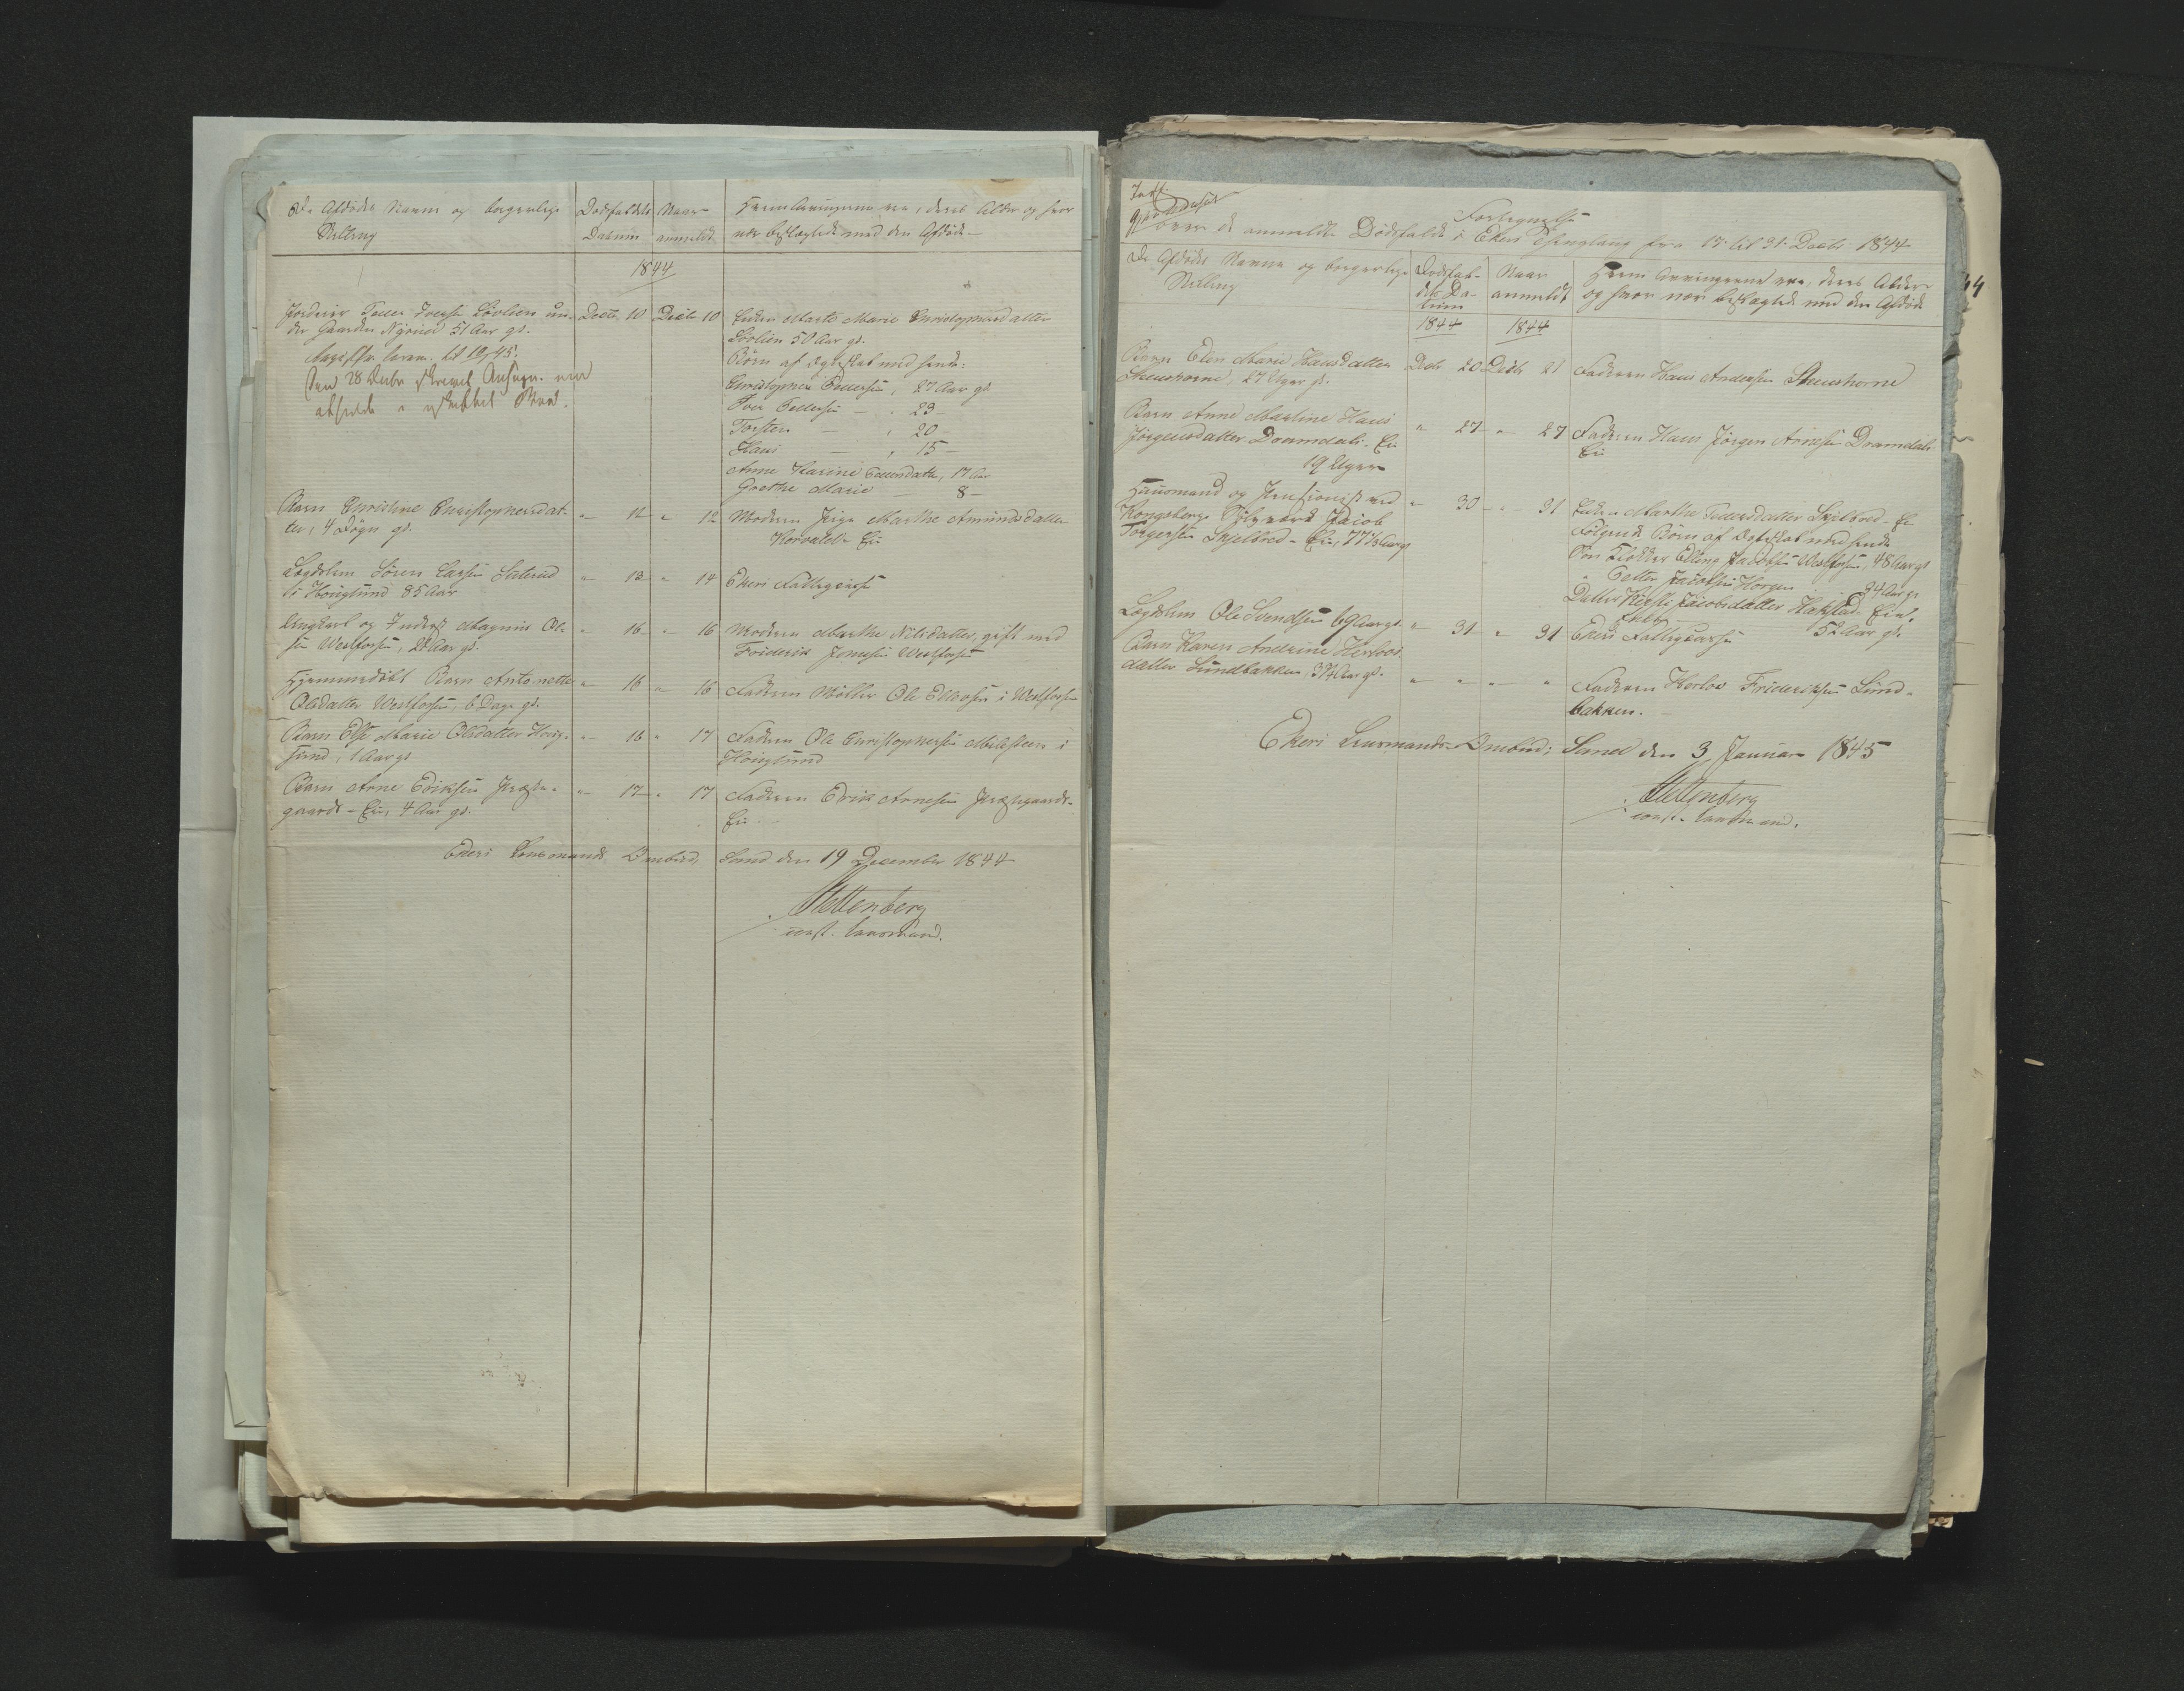 De Afdødes Navne og borgerlige
Stilling
Dødsfaldets
Datum
Naar
anmeldt
Hvem Arvingerne ere, deres Alder og hvor
nær beslægtede med den Afdøde
1844
Peder Iversen Løvlien un-
der Gaarden 51 Aar gl.
Decbr 10 Decbr 10
Enken Marte Marie Christophersdatter
Løvlien 50 Aar gl.
Børn af Ægteskab med hende:
Christopher Pedersen, 27 Aar gl.
Iver Pedersen — " 23 —
Torsten — " 20 —
Hans — " 15 —
Anne Karine Pedersdatter, 17 Aar
Grethe Marie — 8 —
til 19/45.
Den 28 Decbr
Barn Christine Christophersdat-
ter, 4 Døgn gl.
" 12 " 12
Moderen Pige Marthe Amundsdatter
Eie
Lægdslem Søren Larsen
i Hougsund 85 Aar
" 13 " 14
Ekers Fattigcasse
Ungkarl og Inderst Magnus Ol-
sen Westfossen, 28 Aar gl.
" 16 " 16
Moderen Marthe Nilsdatter, gift med
Friderik Jonsen Westfossen
Hjemmedøbt Barn Antonette
Olsdatter Westfossen, 6 Dage gl.
" 16 " 16
Faderen Møller Ole Ellevsen i Westfossen
Barn Else Marie Olsdatter Houg-
sund, 1 Aar gl.
" 16 " 17
Faderen Ole Christophersen i
Hougsund
Barn Arne Eriksen Præste-
gaards-Eie, 4 Aar gl.
" 17 " 17
Faderen Erik Arnesen Præstegaards-
Eie
Ekers Lensmands Ombud, Sand den 19 December 1844
Stettenberg
const. Lensmand.
Fortegnelse
over de anmeldte Dødsfald i Ekers Thinglaug fra 17 til 31 Decbr 1844
De Afdødes Navne og borgerlige
Stilling
Dødsfal-
dets Da-
tum
Naar
anmeldt
Hvem Arvingerne ere, deres Alder
og hvor nær beslægtede med den Afdøde
44
1844 1844
Barn Elen Marie Hansdatter
Steenshorne, 27 Uger gl.
Decbr 20 Decbr 21
Faderen Hans Andersen Steenshorne
Barn Anne Martine Hans
Jørgensdatter Dramdals-Eie
19 Uger
" 27 " 27
Faderen Hans Jørgen Arnesen Dramdals
Eie
Huusmand og Pensionist ved
Kongsberg Sølvværk Jacob
Torgersen Skjelbred-Eie, 77½ Aar gl
" 30 " 31
Enken Marthe Pedersdatter Skjelbred-Eie
Følgende Børn af Ægteskab med hende
Søn Elling Jacobsen Westfossen, 48 Aar gl
" Petter Jacobsen Horgen 34 Aar gl
Datter Kirsti Jacobsdatter Hakstad-Eie,
52 Aar gl.
Lægdslem Ole Svendsen 69 Aar gl.
" 31 " 31
Ekers Fattigcasse
Barn Karen Andrine Herlovs
datter Lundbakken 3¾ Aar gl.
" " " "
Faderen Herlov Frideriksen Lund-
bakken.
Ekers Lensmands-Ombud; Sand den 3 Januar 1845
Stettenberg
const. Lensmand.